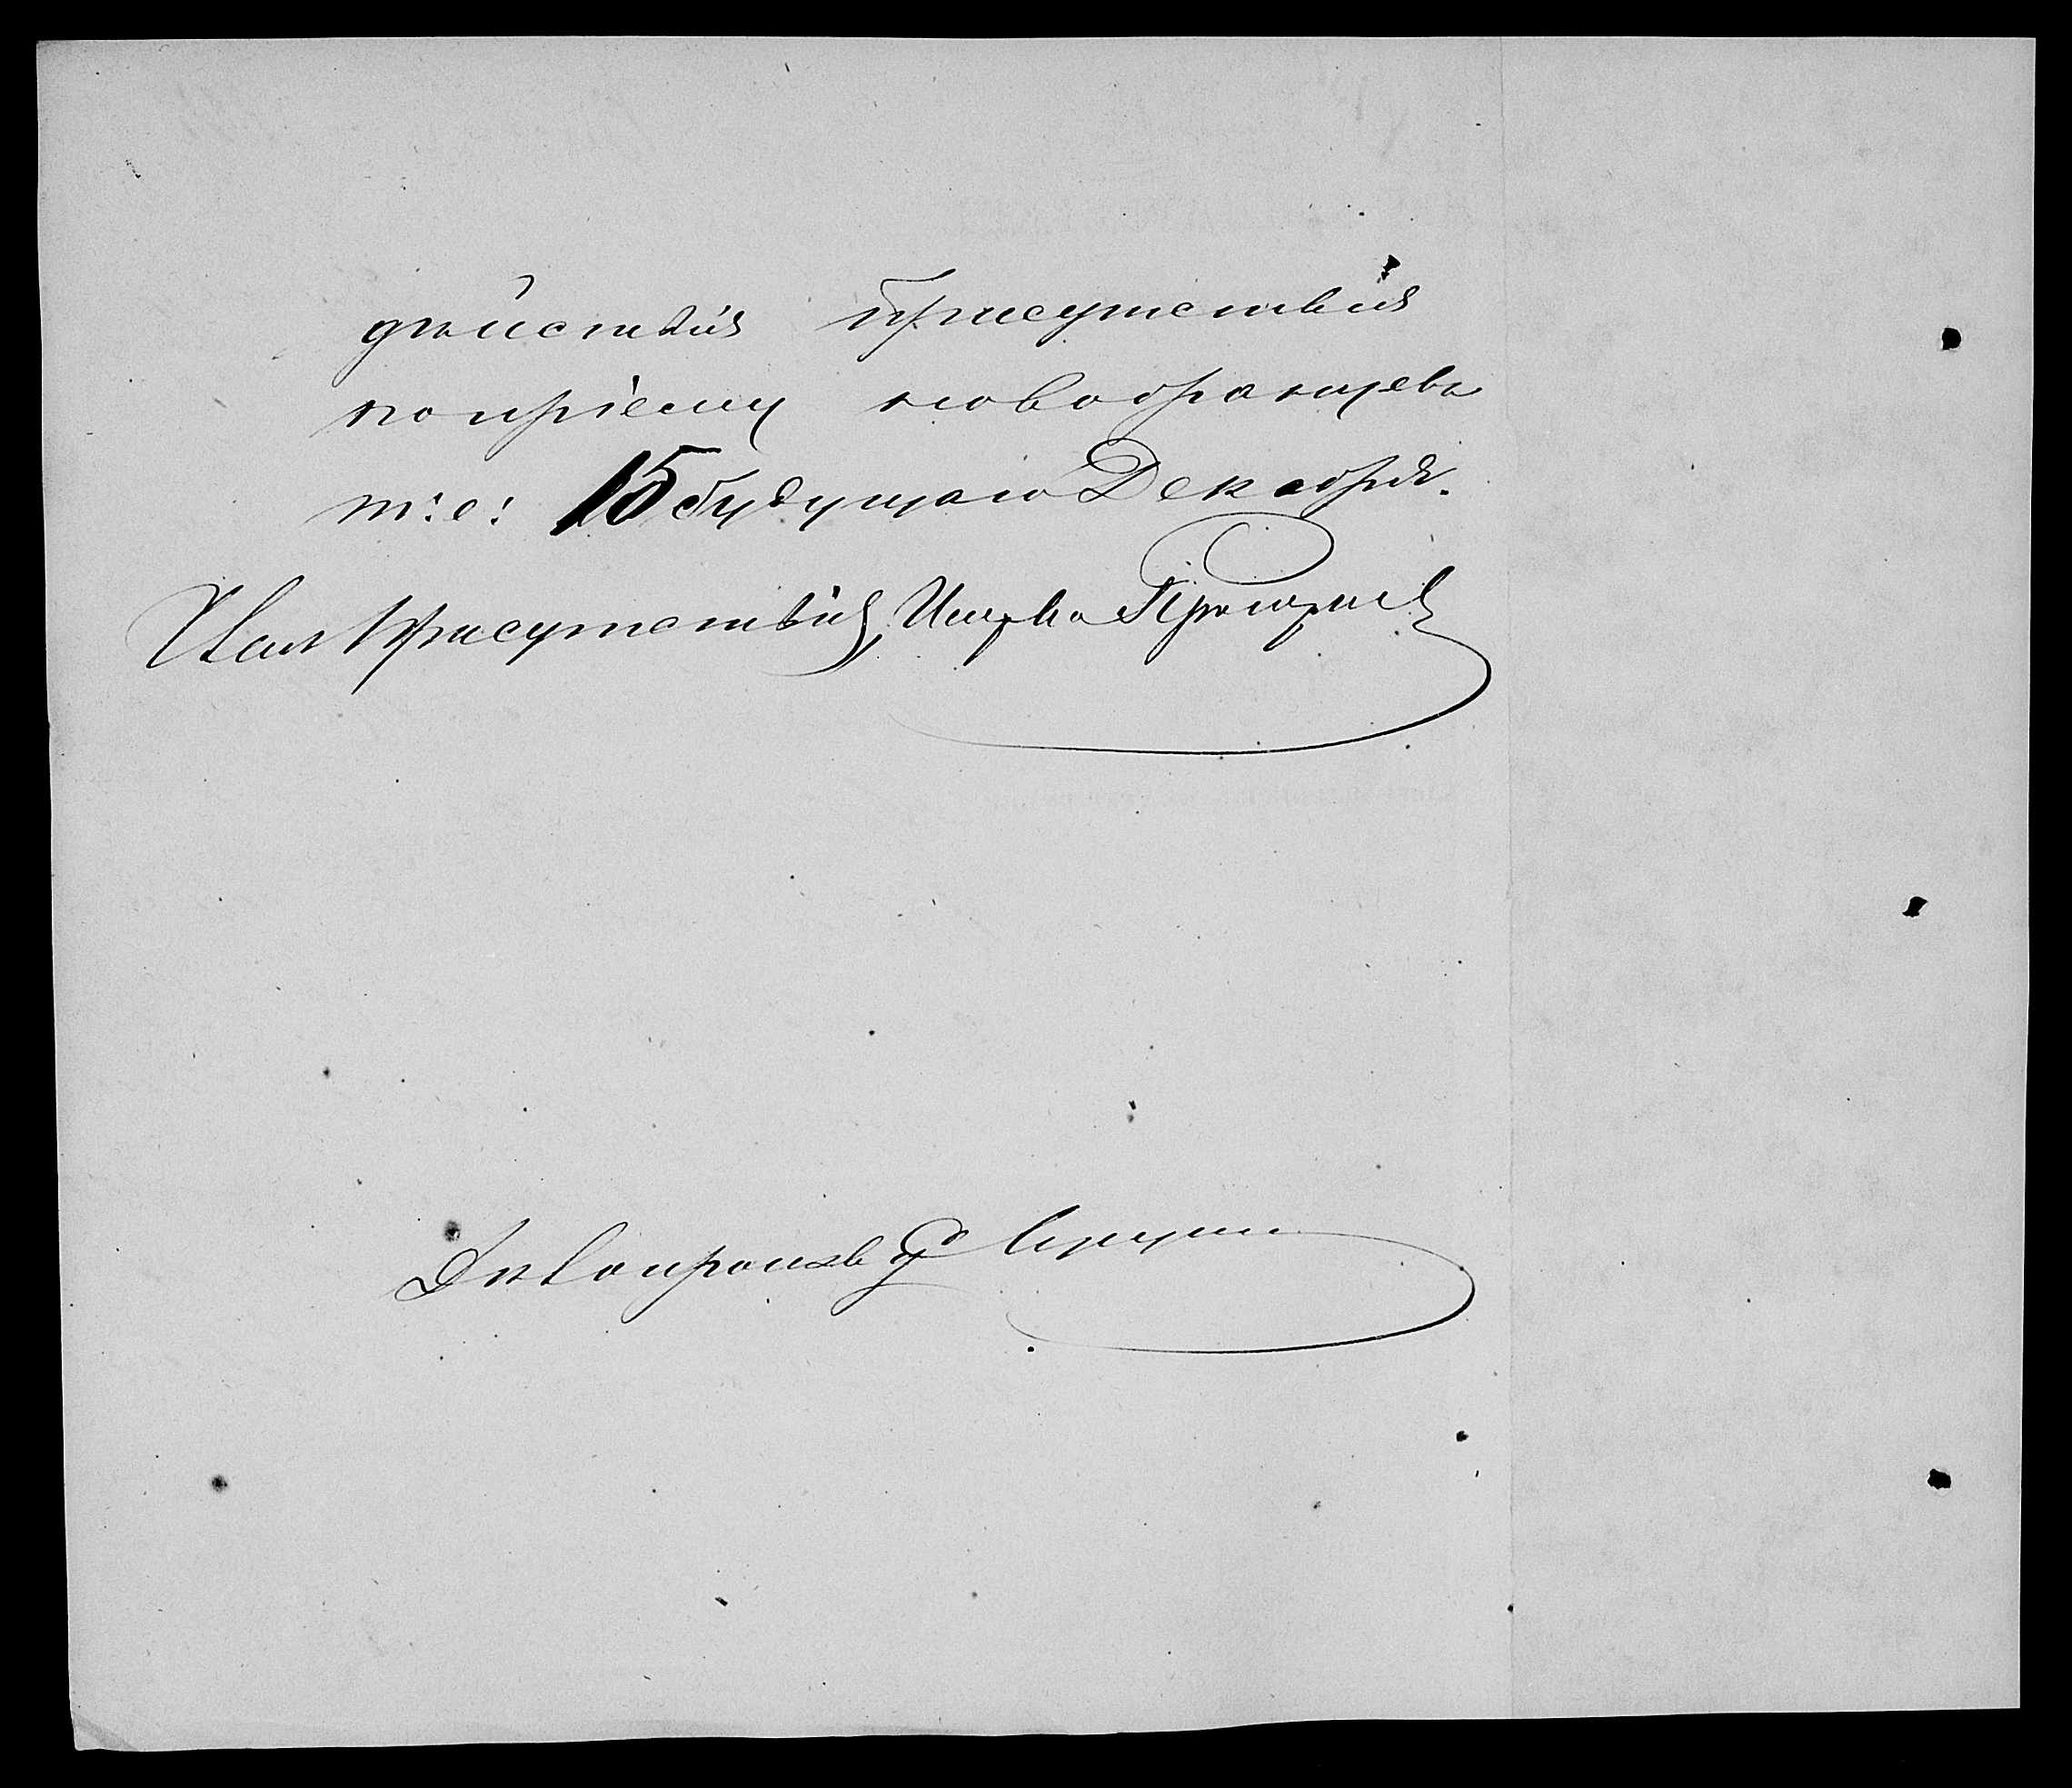 дѣйствія Присутствія
по пріему новобранцевъ
т: е: 15 будущаго Декабря.
Член Присутствія,
Дѣлопроизвод